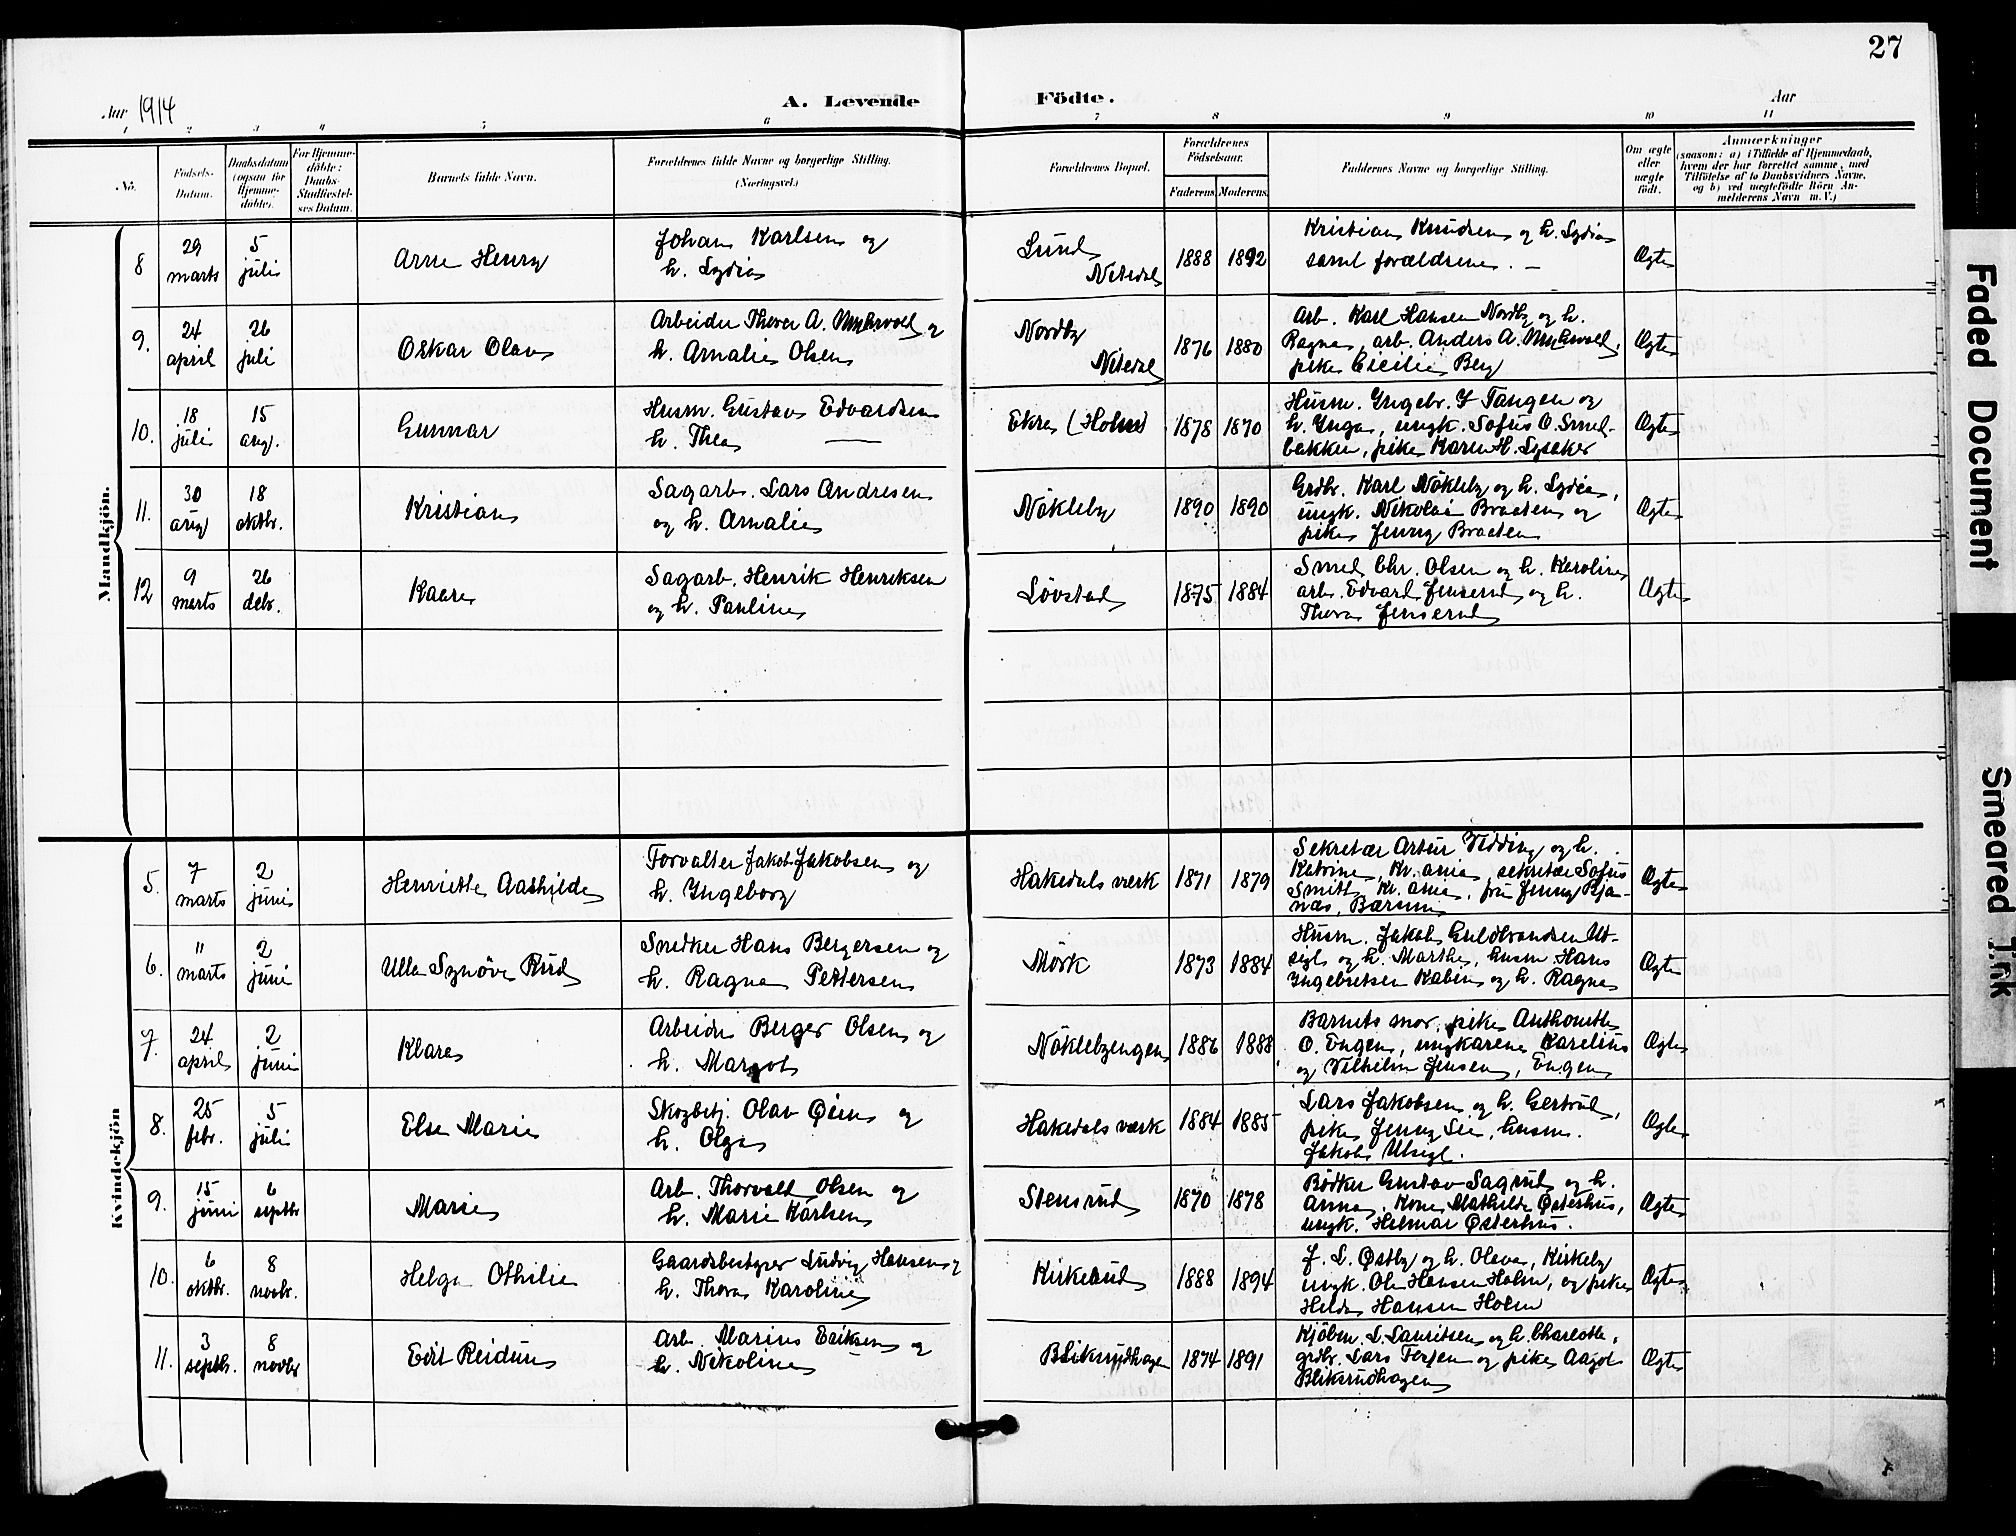 27
Aar 1914
A. Levende
Födte.
Aar
1 2 3 4 5 6 7 8 9 10 11
No.
Fødsels-
Datum.
Daabsdatum
(ogsaa for
Hjemme-
døbte).
For Hjemme-
døbte:
Daabs-
Stadfæstel-
ses Datum.
Barnets fulde Navn.
Forældrenes fulde Navne og borgerlige Stilling.
(Næringsvei.)
Forældrenes Bopæl.
Forældrenes
Födselsaar.
Faderens. Moderens.
Faddernes Navne og borgerlige Stilling.
Om ægte
eller
uægte
födt.
Anmærkninger
(saasom: a) i Tilfælde af Hjemmedaab,
hvem der har forrettet samme, med
Tilføielse af to Daabsvidners Navne,
og b) ved uægtefödte Börn An-
melderens Navn m. V.)
Mandkjön.
8
29
marts
5
juli
Arne Henry
Johan Karlsen og
h. Lydia
Lund
Nitedal
1888 1892
Kristian Knudsen og h. Lydia
samt forældrene. —
Ægte
9.
24
april
26
juli
Oskar Olav
Arbeider Thorer A. Myhrvold og
h. Amalie Olsen
Nordby
Nitedal
1876 1880
Arb. Karl Hansen Nordby og h.
Ragna, arb. Anders A. Myhrvold,
pike Cicilie Berg
Ægte
10.
18
juli
15
aug.
Gunnar
Husm. Gustav Edvardsen
h. Thea —
Ekra (Holm)
1878 1870
Husm. Ingebr. J Tangen og
h. Inga, ungk. Sofus O. Smed-
bakken, pike Karen H. Lysaker
Ægte
11.
30
aug
18
oktbr.
Kristian
Sagarb. Lars Andresen
og h. Amalie
Nökleby
1890 1890
Grdbr. Karl Nökleby og h. Lydia,
ungk. Nikolai Braaten og
pike Jenny Braaten
Ægte
12
9
marts
26
debr.
Kaare
Sagarb. Henrik Henriksen
og h. Pauline
Lövstad
1875 1884
Smed Chr. Olsen og h. Karoline
arb. Edvard Jenserud og h.
Thora Jenserud
Ægte
Kvindekjön
5.
7
marts
2
juni
Henriette Aashilde
Forvalter Jakob Jakobsen og
h. Ingeborg
Hakedals værk
1871 1879
Sekretær Artur Vidding og h.
Katrine, Kr.ania, sekretær Sofus
Smitt, Kr.ania, fru Jenny Rja-
næs, Bærum
Ægte
6.
11
marts
2
juni
Ulla Synöve Rud
Snedker Hans Bergersen og
h. Ragna Pettersen
Mörk
1873 1884
Husm. Jakob Guldbrandsen Ut-
sigt og h. Marthe, husm. Hans
Ingebretsen Kabin og h. Ragna
Ægte
7.
24
april
2
juni
Klara
Arbeider Berger Olsen og
h. Margot
Nöklebyengen
1886 1888
Barnets mor, pike Anthonette
O. Engen, ungkarene Karelius
og Vilhelm Jensen, Engen
Ægte
8.
25
febr.
5
juli
Else Marie
Skogbetj. Olav Øien og
h. Olga
Hakedals værk
1884 1885
Lars Jakobsen og h. Gertrud,
pike Jenny Lie, husm.
Jakob Utsigt.
Ægte
9.
15
juni
6
septbr
Marie
Arb. Thorvald Olsen og
h. Marie Karlsen
Stensrud
1870 1878
Bödker Gustav Sagrud og h.
Anna, Kone Mathilde Østerhus,
ungk. Helmar Østerhus.
Ægte
10.
6
oktbr.
8
novbr.
Helga Othilie
Gaardsbestyrer Ludvig Hansen og
h. Thora Karoline
Kirkerud
1888 1894
J. L. Østby og h. Olava, Kirkeby
ungk. Ole Hansen Holm, og pike
Helda Hansen Holm
Ægte
11.
3
septbr.
8
novbr
Edit Reidun
Arb. Marius Eriksen og
h. Nikoline
Bliksrudhagen
1874 1891
Kjöbm. L. Lauritsen og h. Charlotte,
grdbr. Lars Terjen og pike Aagot
Bliksrudhagen
Ægte
Faded Document
Smeared Ink